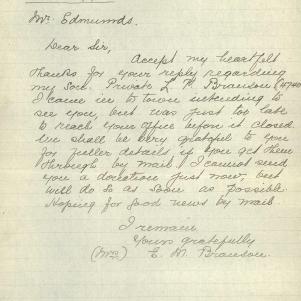 Mr. Edmunds.
Dear Sir,
Accept my heartfelt
thanks for your reply regarding
my son. Private L. H. Branson
I came in to town intending to
see you, but was just too late
to reach your office before it closed.
We shall be very grateful to you
for fuller details, if you get them
through by mail. I cannot send
you a donation just now, but
will do so as soon as possible.
Hoping for good news by mail
I remain
Yours gratefully
(Mrs) E. M. Branson.